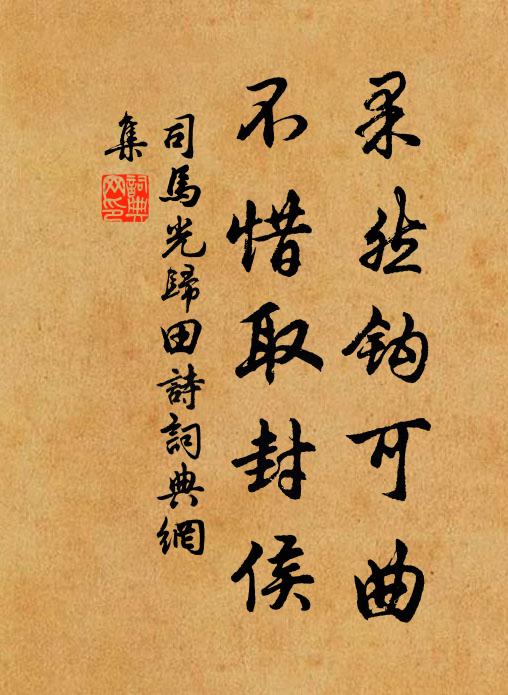 果然鈎可曲
不惜取封侯
司馬光歸田詩詞典網
集
詞典网印